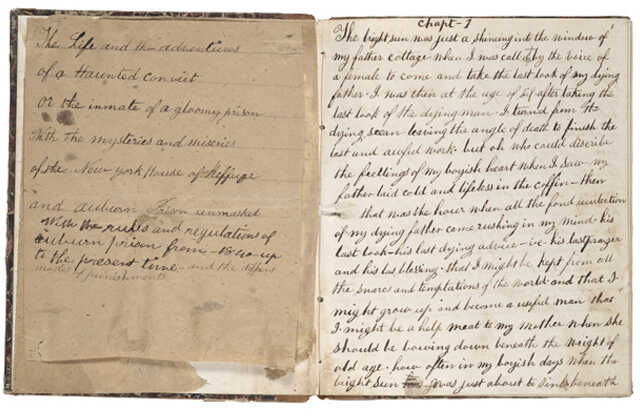 The Life and the adventures
of a Haunted convict
Or the inmate of a gloomy prison
With the mysteries and miseries
of the New york House of Reffuge
and auburn Prison unmasked
With the rules and regulations of
auburn prison from 1840 up
to the present time and the differnt
modes of punishments
Chapt - 1
The bright sun was just a shineing into the window of
my father cottage when I was called by the voice of
a female to come and take the last look of my dying
father. I was then at the age of six after taking the
last look of the dying man - I turnd from the
dying scean leaving the angle of death to finish the
last and awful work - but oh who could discribe
the feellings of my boyish heart when I saw my
father laid cold and lifeless in the coffin - then
that was the hour when all the fond recolection
of my dying father came rushing in my mind his
last look - his last dying advice - his last prayer
and his las blessing - that I might be kept from all
the snares and temptations of the world - and that I
might grow up and become a useful man that
I might be a help meat to my mother when she
should be bowing down beneath the weight of
old age - how often in my boyish days when the
bright sun was just about to sink beneath